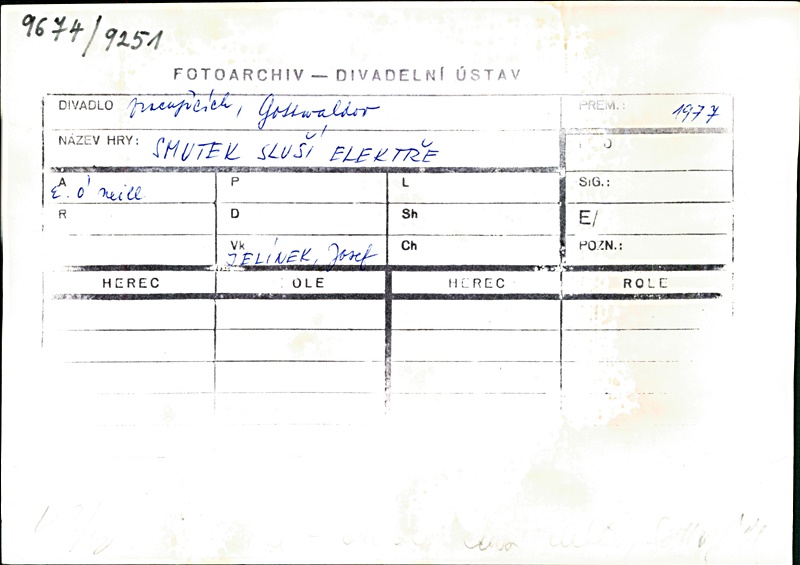 9674/9251
FOTOARCHIV — DIVADELNÍ ÚSTAV
DIVADLO pracujících, Gottwaldov PREM.: 1977
NÁZEV HRY: SMUTEK SLUŠÍ ELEKTŘE
A E. O'neill P L SIG.:
R D Sh E/
Vk JELÍNEK, Josef Ch POZN.:
HEREC OLE HEREC ROLE